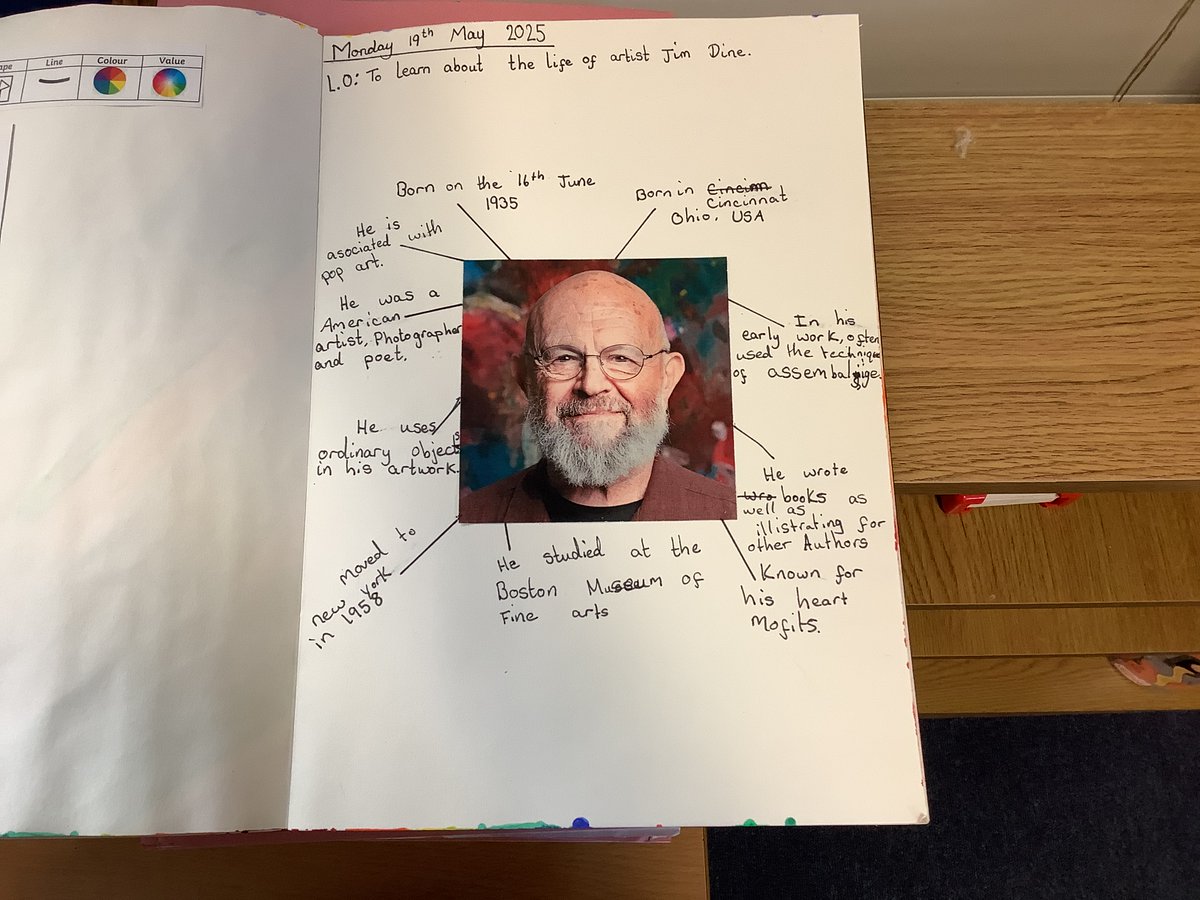 ape Line Colour Value
Monday 19th May 2025
L.O: To learn about the life of artist Jim Dine.
Born on the 16th June
1935
Born in Cincinn
Cincinnat
Ohio, USA
He is
asociated with
pop art.
He was a
American
artist, Photographer
and poet.
In his
early work, often
used the technique
of assembalgige.
He uses
ordinary objects
in his artwork.
He wrote
wro books as
well as
illistrating for
other Authors
moved to
new york
in 1958
He studied at the
Boston Museum of
Fine arts
Known for
his heart
Mofits.